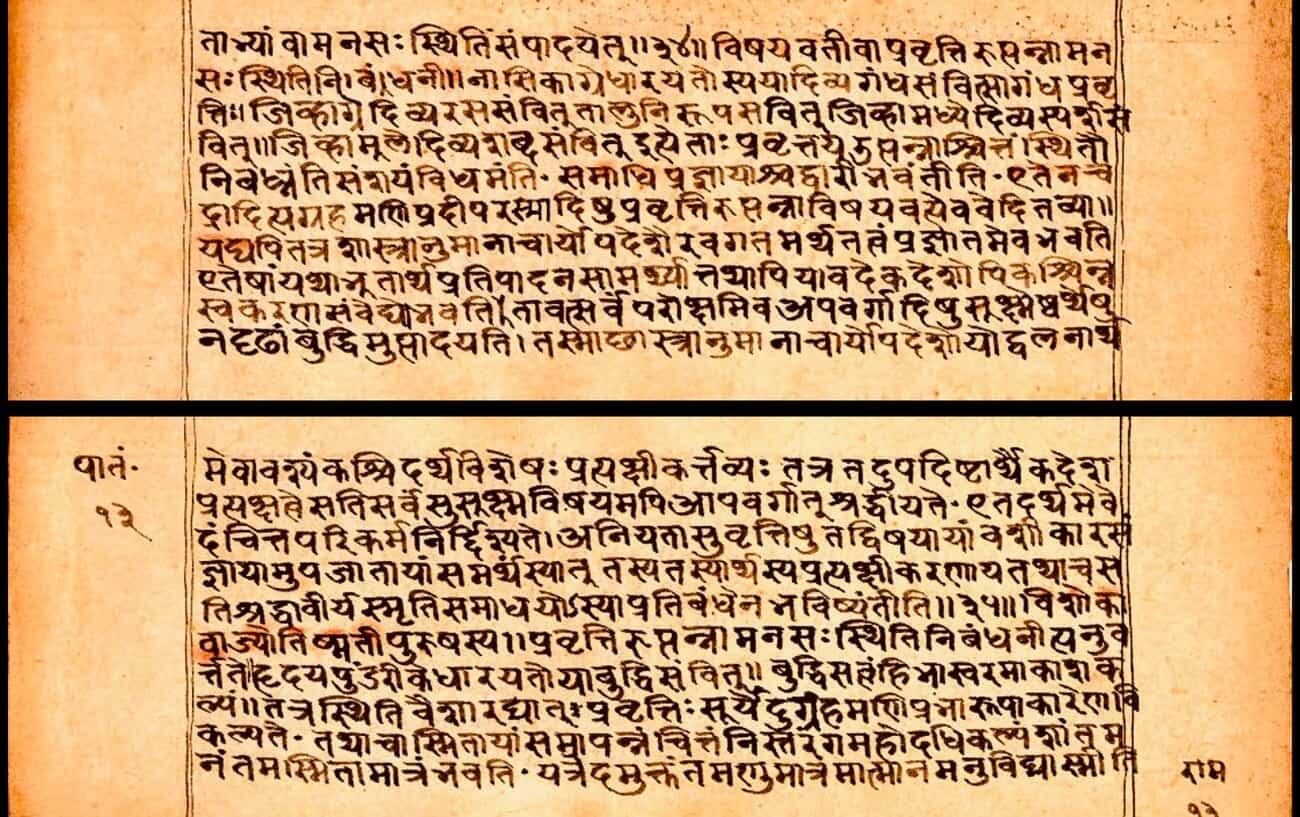 ताभ्यां वा मनसः स्थितिं संपादयेत्॥३४॥ विषयवती वा प्रवृत्तिरुत्पन्ना मन
सः स्थितिनिबंधनी॥ नासिकाग्रे धारयतोस्य या दिव्यगंधसंवित्सा गंधप्रवृ
त्तिः॥ जिव्हाग्रे दिव्यरससंवित् तालुनि रूपसंवित् जिव्हामध्ये दिव्यस्पर्शसं
वित्॥ जिव्हामुले दिव्यशब्दसंवित् इत्येताः प्रवृत्तय उत्पन्नाश्चित्तं स्थितौ
निबध्नंति संशयं विधमंति॰ समाधिप्रज्ञायाश्च द्वारीभवंतीति॰ एतेन चं
द्रादित्यग्रहमणिप्रदीपरस्मादिषु प्रवृत्तिरुत्पन्ना विषयवत्येव वेदितव्या॥
यद्यपि तत्र शास्त्रानुमानाचार्योपदेशैरवगतमर्थतत्वं प्रज्ञातमेव भवति
एतेषां यथाभुतार्थप्रतिपादनसामर्थ्यात् तथापि यावदेकदेशोपि कश्चिन्न
स्वकरणसंवेद्यो भवति। तावत्सर्वं परोक्षमिव अपवर्गादिषु सुक्ष्मेष्वर्थेषु
न दृढां बुद्धिमुत्पादयति। तस्माच्छास्त्रानुमानाचार्योपदेशयोद्वलनार्थ
पातं॰
१३
मेवावश्यं कश्चिदर्थविशेषः प्रत्यक्षीकर्त्तव्यः तत्र तदुपदिष्टार्थैकदेश
प्रत्यक्षत्वे सति सर्वं सुसुक्ष्मविषयमपि आपवर्गात् श्रद्धीयते॰ एतदर्थमेवे
दं चित्तपरिकर्म निर्द्दिश्यते। अनियतासु वृत्तिषु तद्विषयायां वशीकारसं
ज्ञायामुपजातायां समर्थं स्यात् तस्य तस्यार्थस्य प्रत्यक्षीकरणाय तथा च स
ति श्रद्धावीर्यस्मृतिसमाधयोऽस्याप्रतिबंधेन भविष्यंतीति॥३५॥ विशोका
वा ज्योतिष्मती पुरुषस्य॥ प्रवृत्तिरुत्पन्ना मनसः स्थितिनिबंधनीत्यनुव
र्त्तते हृदयपुंडरीके धारयतो या बुद्धिसंवित्॥ बुद्धिसत्वं हि भास्वरमाकाशक
ल्पं॥ तत्र स्थितिवैशारद्यात् प्रवृत्तिः सूर्येंदुग्रहमणिप्रभारूपाकारेण वि
कल्पते॰ तथा चास्मितायां समापन्नं चित्तं निस्तरंगमहोदधिकल्पं शांतम
नंतमस्मितामात्रं भवति॰ यत्रेदमुक्तं तमणुमात्रमात्मानमनुविद्यास्मीति
राम
१३